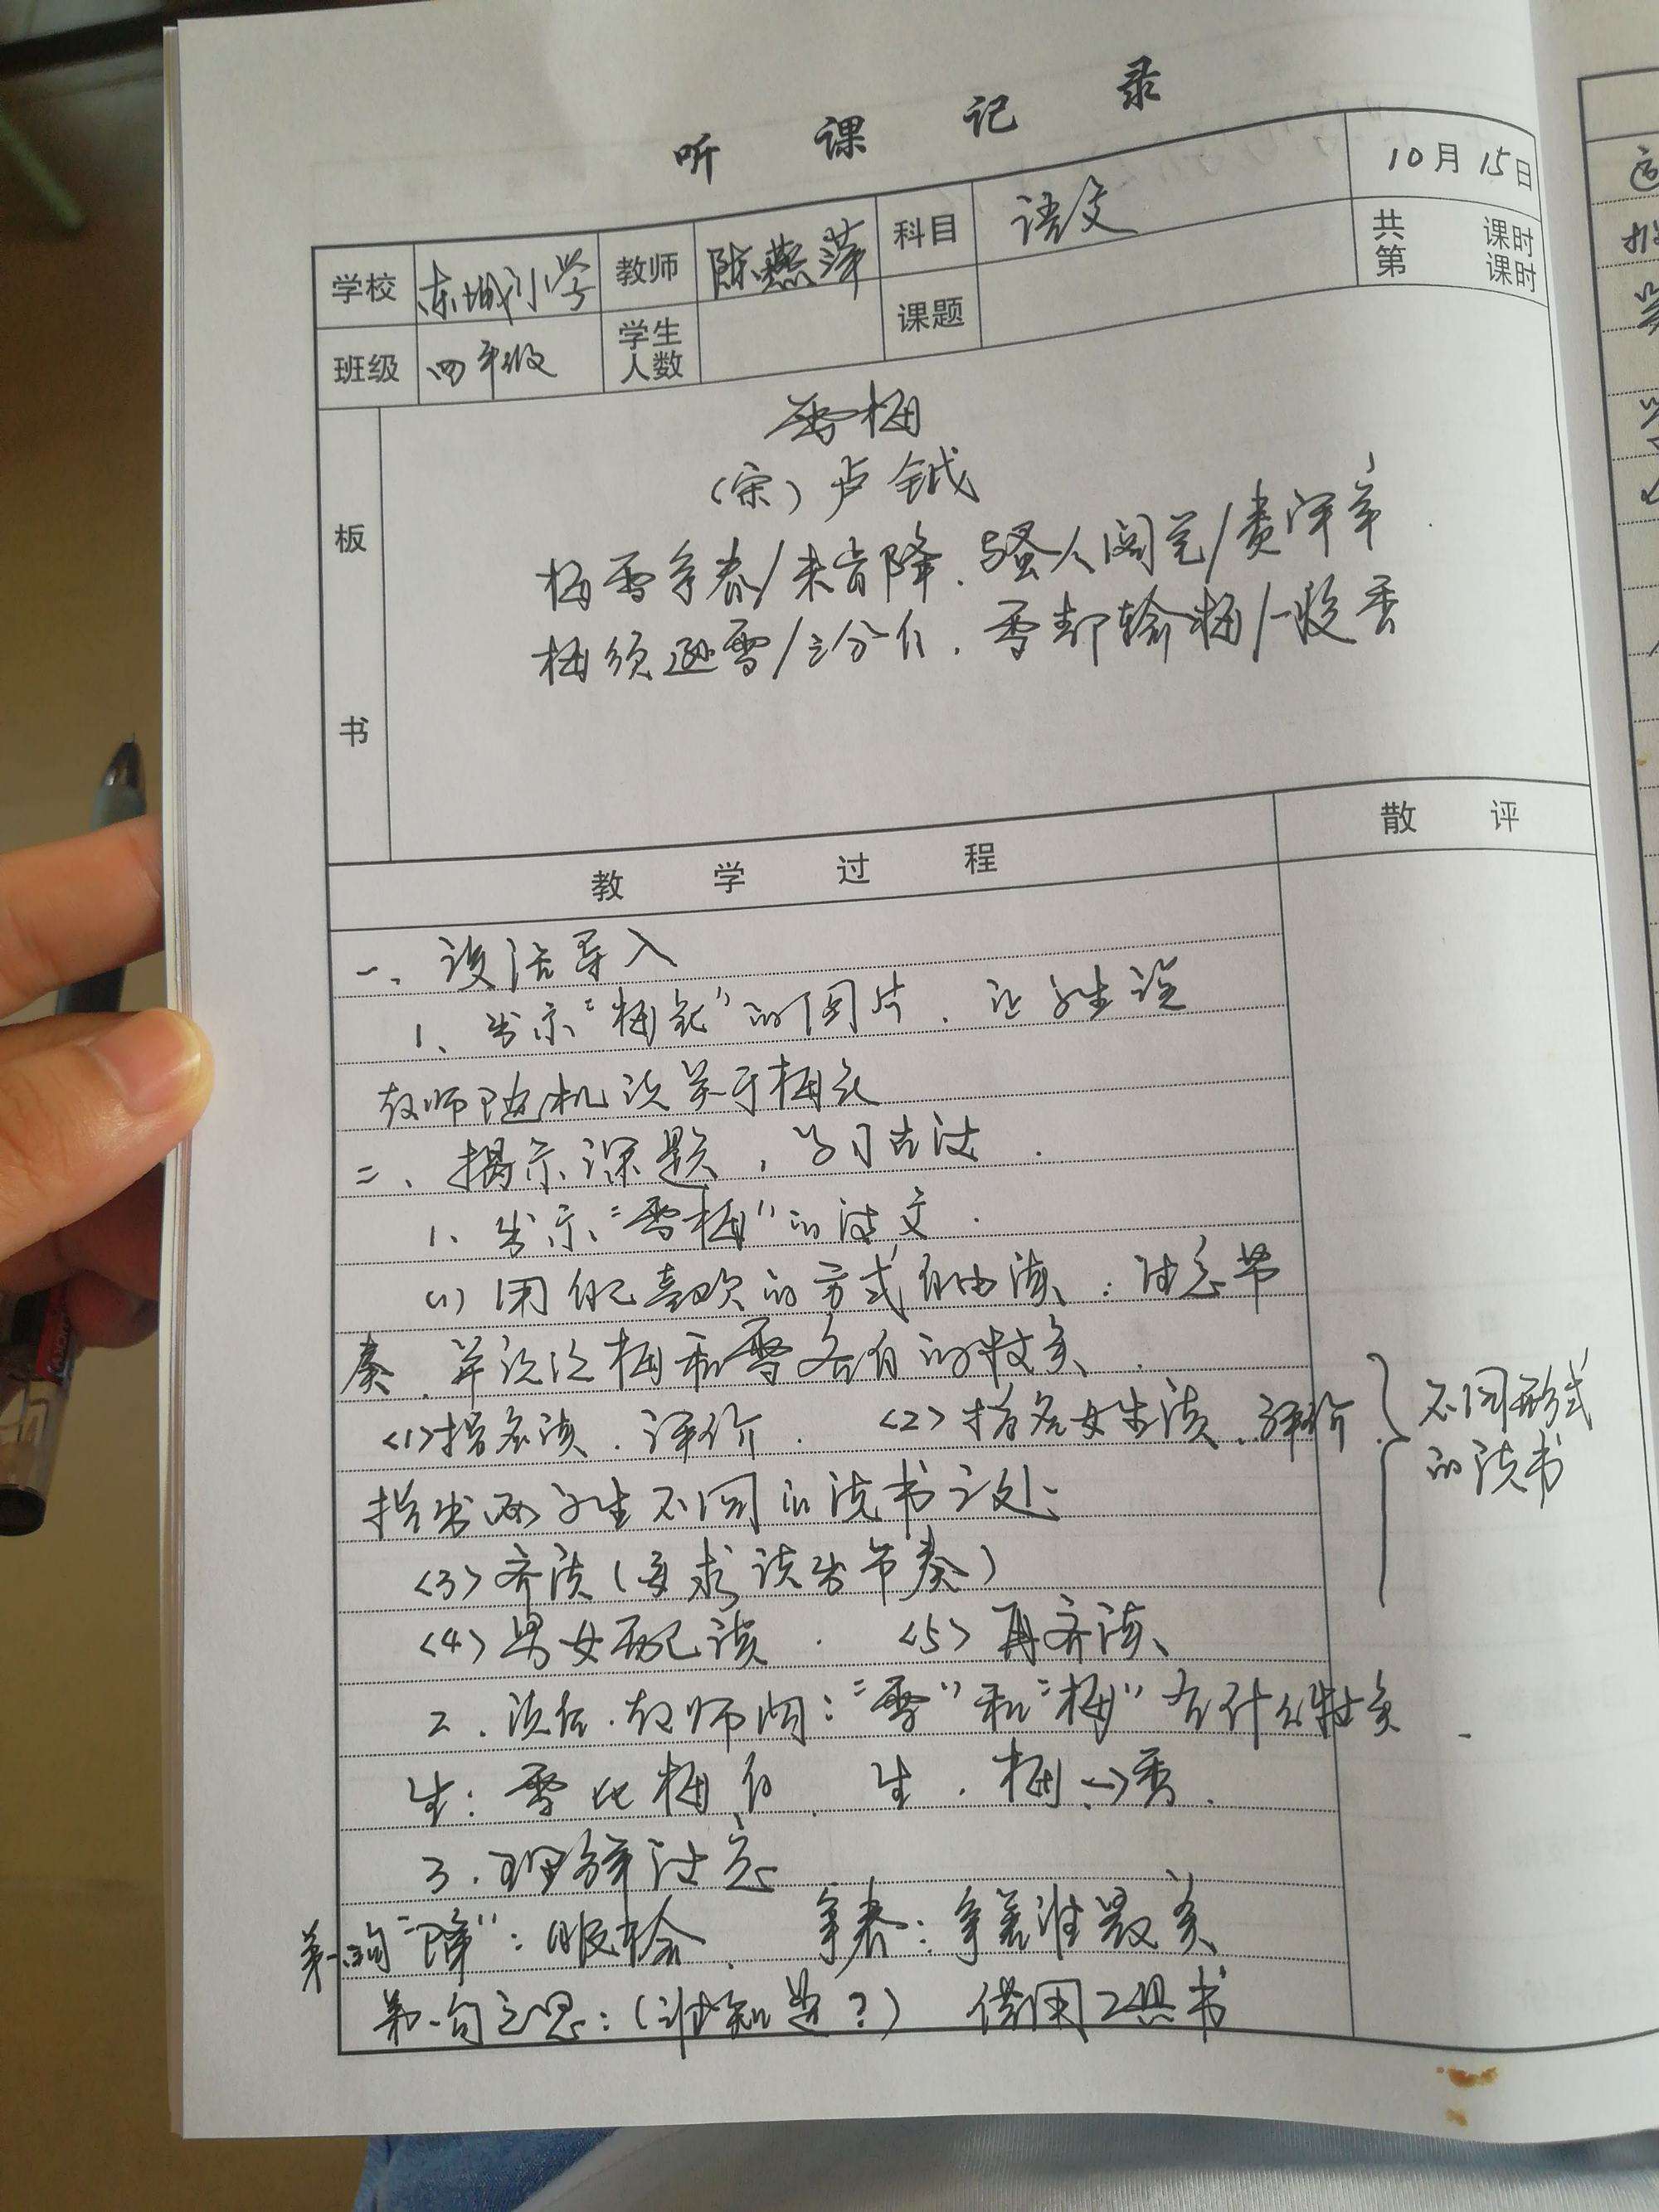 听课记录
10月15日
学校 东城小学 教师 陈燕萍 科目 语文 共 课时
第 课时
班级 四年级 学生人数 课题
板书
雪梅
(宋)卢钺
梅雪争春/未肯降、骚人阁笔/费评章
梅须逊雪/三分白、雪却输梅/一段香
教学过程 散评
一、谈话导入
1、出示“梅花”的图片、让学生说
教师随机说关于梅花
二、揭示课题,学习古诗.
1、出示“雪梅”的诗文.
(1)用自己喜欢的方式自由读、:注意节
奏、并说说梅和雪各自的特点.
<1>指名读、评价. <2>指名女生读、评价
不同形式
的读书
指出两学生不同的读书之处:
<3>齐读(要求读出节奏)
<4>男女配读. <5>再齐读、
2、读后、教师问:“雪”和“梅”有什么特点
生:雪比梅白、生、梅→香.
3、理解诗意
第一句“降”:服输、争春:争着谁最美
第一句之思:(谁知道?) 借用工具书